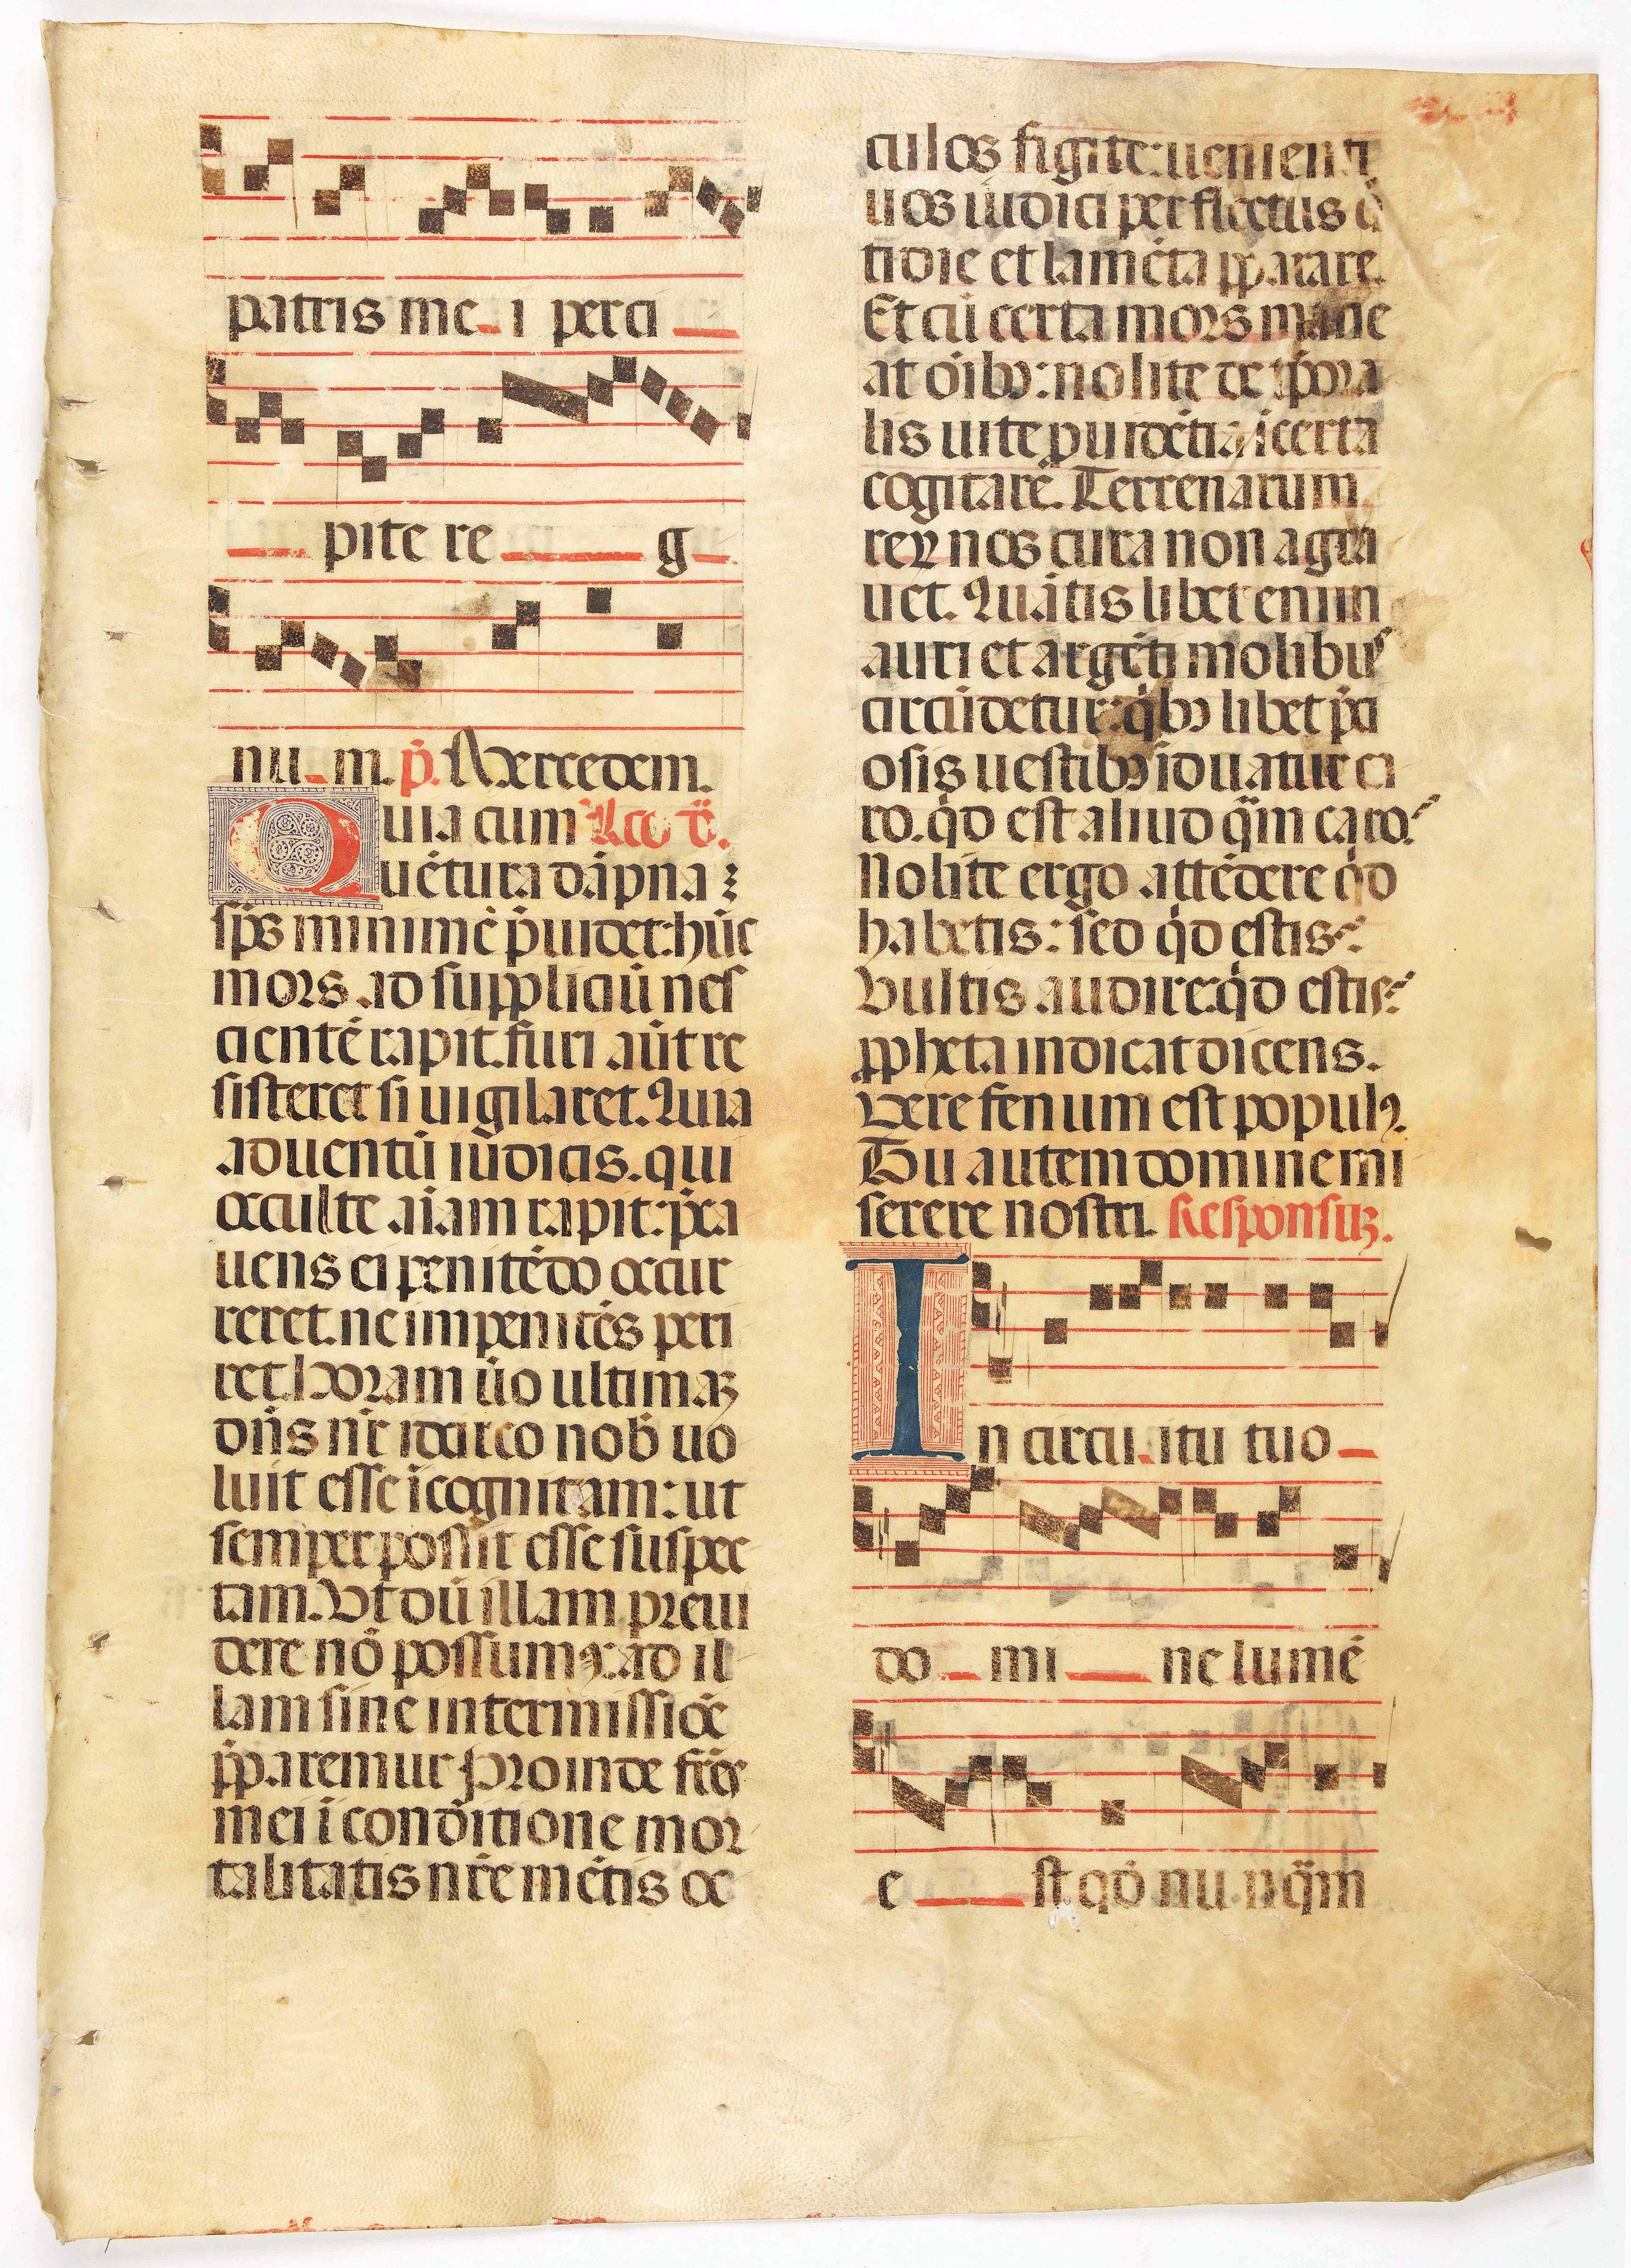 patris me i perci
pite re g
nu m. p̄. Mercedem.
Quia cum Lc̄o
uēturā dāpna
sps̄ minime p̄uidet: hūc
mors ad suppliciū nes
cientē rapit. furi aūt re
sisteret si uigilaret. Quia
aduentū iudicis. qui
occulte aīam rapit: p̄ca
uens ei penitēdo occur
reret. ne impenitēs peri
ret. Horam ūo ultimaꝫ
dn̄s nr̄ idcirco nob̄ uo
luit esse īcognitam: ut
semper possit esse suspec
tam. Vt dū illam preui
dere nō possumꝰ: ad il
lam sine intermissiōe
p̄paremur Proinde fr̄es
mei ī conditione mor
talitatis nr̄e mētis oc
culos figite: uenienti
uos iudici per fletus q̄
tidie et lamēta p̄parare.
Et cū certa mors mane
at oībꝫ: nolite de tp̄ora
lis uite ꝓuidētia īcerta
cogitare. Terrenarum
reꝝ nos cura non agra
uet. Quātis libet enim
auri et argēti molibus
circūdetur: qͥbꝫ libet p̄ci
osis uestibꝫ īduatur ca
ro. qͥd est aliud qͣm caro?
Nolite ergo attēdere qͥd
habetis: sed qͥd estis?
Vultis audire: qͥd estis?
ꝓpheta indicat dicens.
Vere fenum est populꝰ.
Tu autem domine mi
serere nostri. Responsuꝫ.
In circu itu tuo
do mi ne lumē
e st qd̄ nu nqͣm